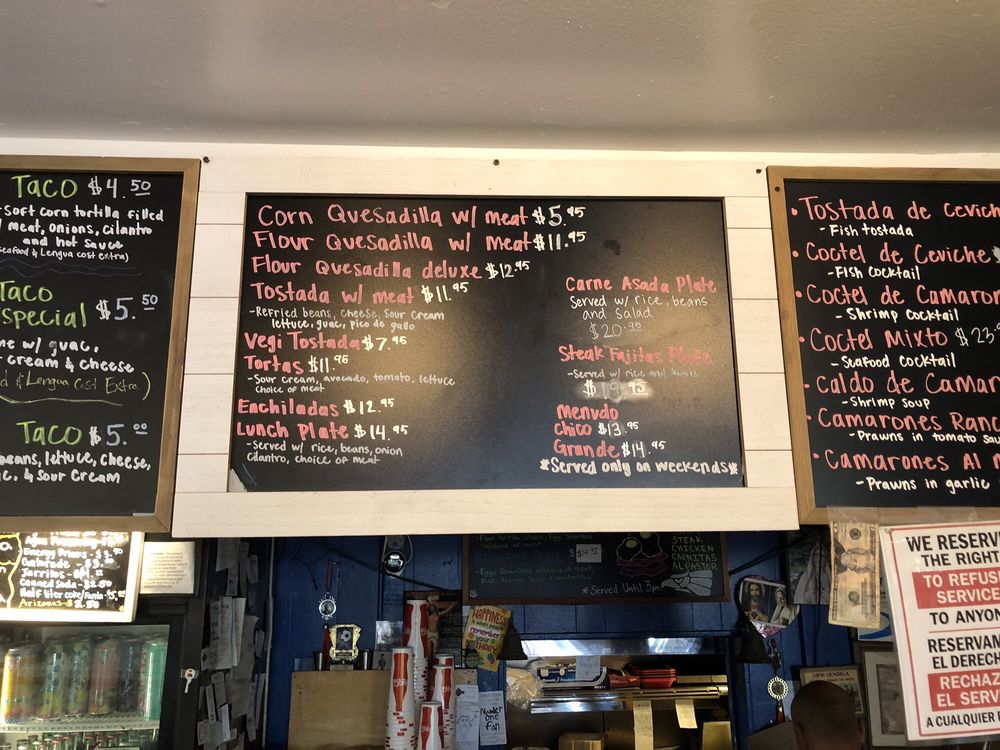 TACO $4.50
-soft corn tortilla filled
meat, onions, cilantro
and hot sauce
Seafood & Lengua cost extra)
Taco
Special $5.50
me w/ guac,
cream & cheese
& Lengua Cost Extra)
TACO $5.00
beans, lettuce, cheese,
& sour cream
Corn Quesadilla w/ meat $5.95
Flour Quesadilla w/ meat $11.95
Flour Quesadilla deluxe $12.95
Tostada w/ meat $11.95
-Refried beans, cheese, sour cream
lettuce, guac, pico de gallo
Vegi Tostada $7.95
Tortas $11.95
-Sour cream, avocado, tomato, lettuce
choice of meat
Enchiladas $12.95
Lunch Plate $14.95
-Served w/ rice, beans, onion
cilantro, choice of meat
Carne Asada Plate
Served w/ rice, beans
and salad
$20.95
Steak Fajitas Plate
-Served w/ rice and beans
Menudo
Chico $13.95
Grande $14.95
*Served only on weekends*
•Tostada de Cevich
-Fish tostada
•Coctel de Ceviche
-Fish cocktail
•Coctel de Camaron
-Shrimp cocktail
Coctel Mixto $23
-Seafood cocktail
•Caldo de Camar
-Shrimp soup
•Camarones Ranc
-Prawns in tomato sau
•Camarones Al M
-Prawns in garlic
Energy Drinks
Gatorade
Jarritos
Canned Soda $2.50
Half liter coke/Fanta
Arizona
STEAK
CHICKEN
CARNITAS
AL PASTOR
*Served Until 3pm
HAPPINESS
remember
your
Number
one
Fan
WE RESERV
THE RIGHT
TO REFUS
SERVICE
TO ANYON
RESERVAM
EL DERECH
RECHAZ
EL SERV
A CUALQUIER